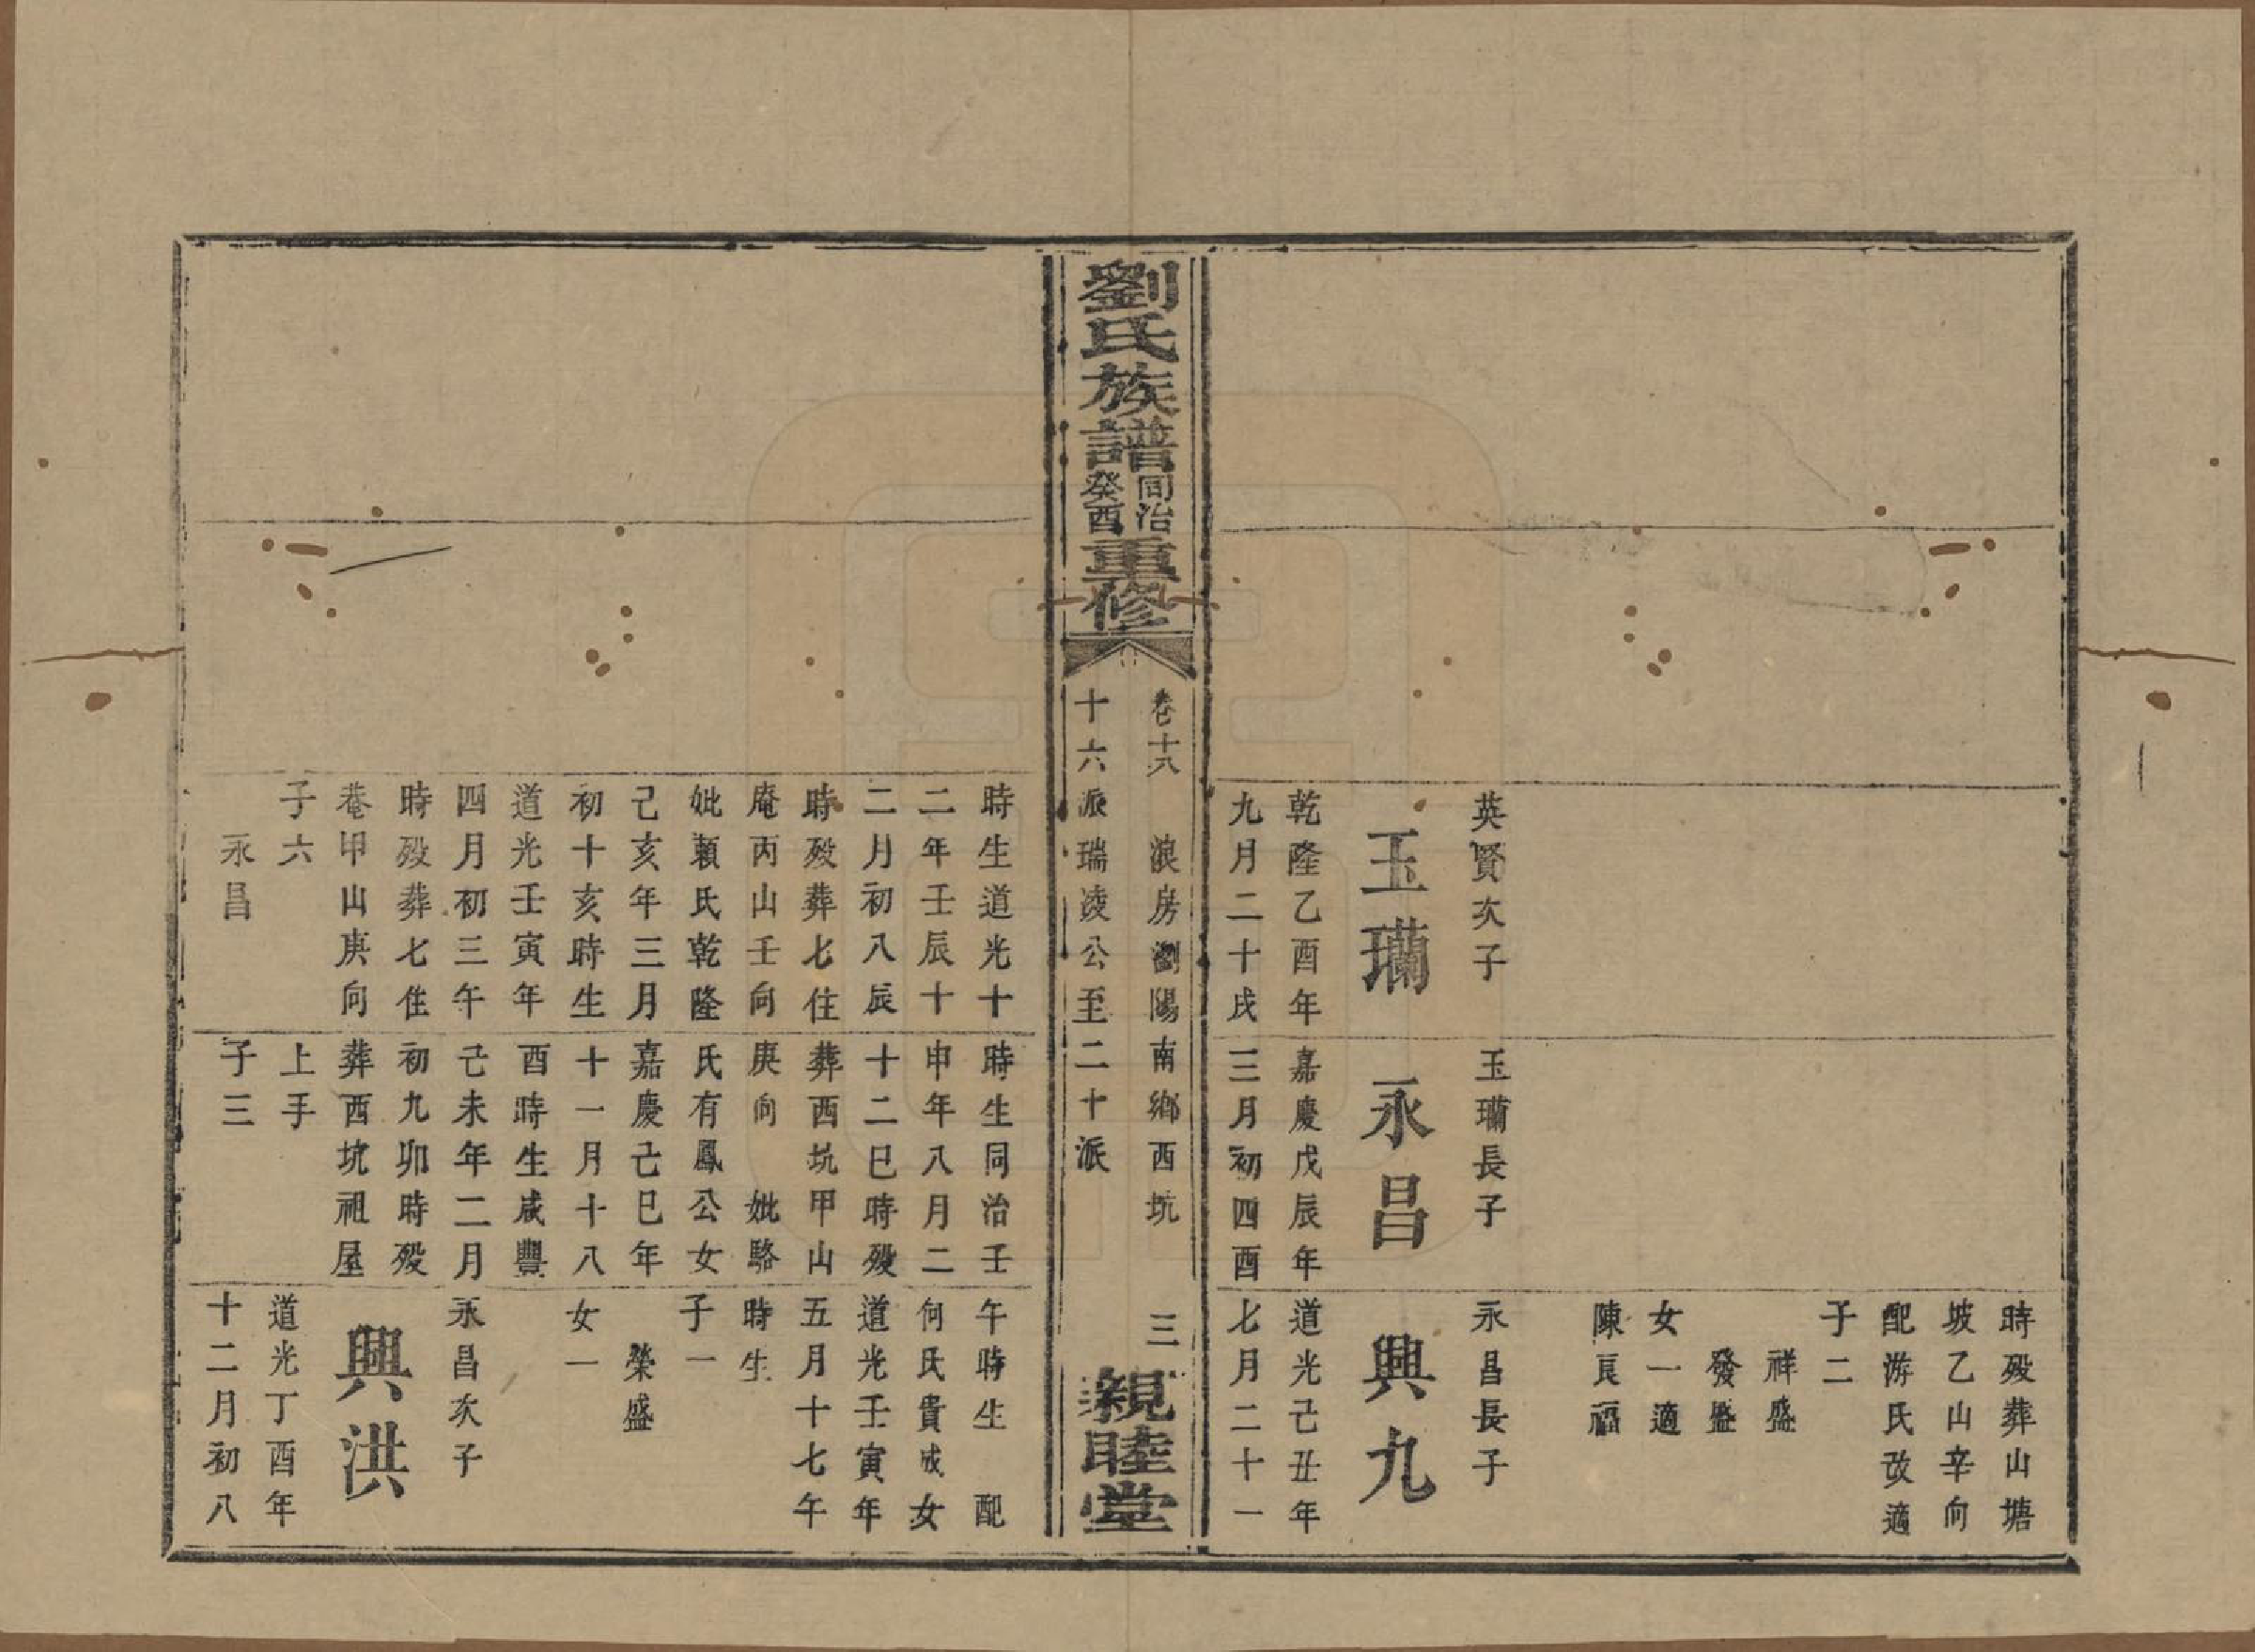 時歿葬山塘
坡乙山辛向
配游氏改適
子二
祥盛
發盛
女一適
陳良福
英賢次子
玉瓓
乾隆乙酉年
九月二十戌
玉瓓長子
永昌
嘉慶戊辰年
三月初四酉
永昌長子
興九
道光己丑年
七月二十一
劉氏族譜
同治
癸酉
重修
卷十八 浪房瀏陽南鄉西坑 三
十六派瑞凌公至二十派
親睦堂
時生道光十
二年壬辰十
二月初八辰
時歿葬七住
庵丙山壬向
妣賴氏乾隆
己亥年三月
初十亥時生
道光壬寅年
四月初三午
時歿葬七住
菴甲山庚向
子六
永昌
時生同治壬
申年八月二
十二巳時歿
葬西坑甲山
庚向 妣駱
氏有鳳公女
嘉慶己巳年
十一月十八
酉時生咸豐
己未年二月
初九卯時歿
葬西坑祖屋
上手
子三
午時生 配
何氏貴成女
道光壬寅年
五月十七午
時生
子一
榮盛
女一
永昌次子
興洪
道光丁酉年
十二月初八